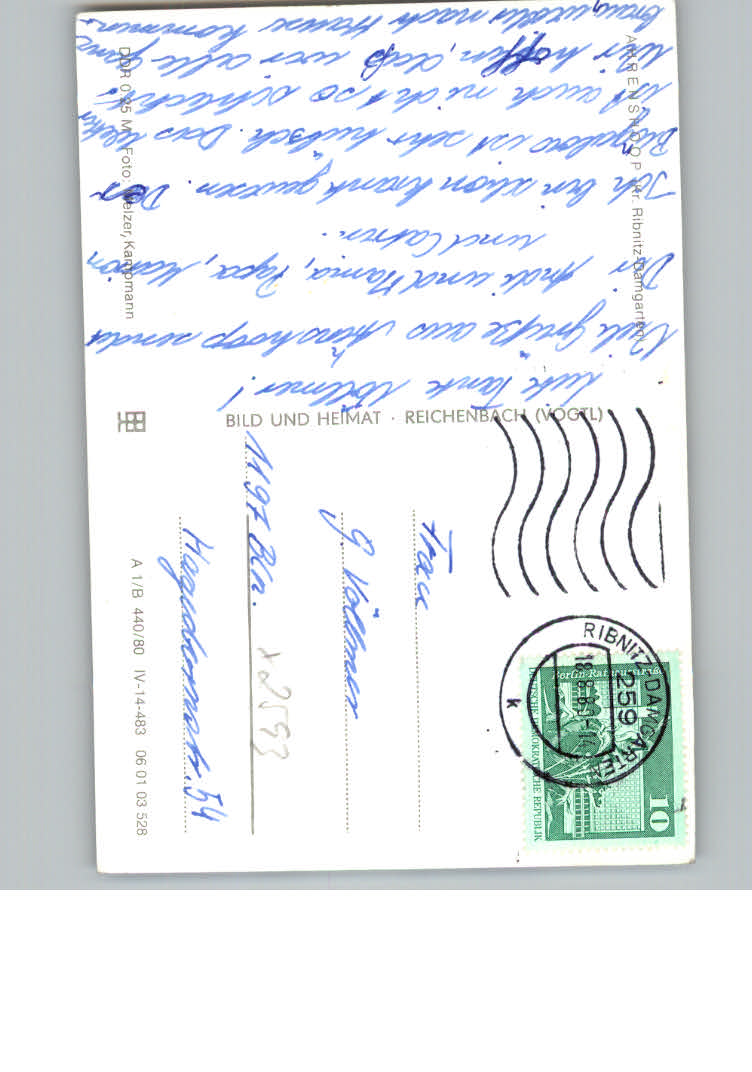 AHRENSHOOP Kr. Ribnitz-Damgarten
Liebe Tante Völlmer!
Viele Grüße aus Ahrenshoop sendet
Dir Andi und Mama, Papa, Marion
und Catrin.
Ich bin schon krank gewesen. Der
Bungalow ist sehr hübsch. Das Wetter
ist auch nicht so schlecht.
Wir hoffen, daß wir alle ganz
braun wieder nach Hause kommen.
DDR 0,25 M Foto: Melzer, Kamjomann
BILD UND HEIMAT · REICHENBACH (VOGTL)
Frau
G. Völlmer
1197 Bln.
54
x 2593
A 1/B 440/80 IV-14-483 06 01 03 528
RIBNITZ-DAMGARTEN
259
k
Berlin-Rathausstraße
DEUTSCHE DEMOKRATISCHE REPUBLIK
10